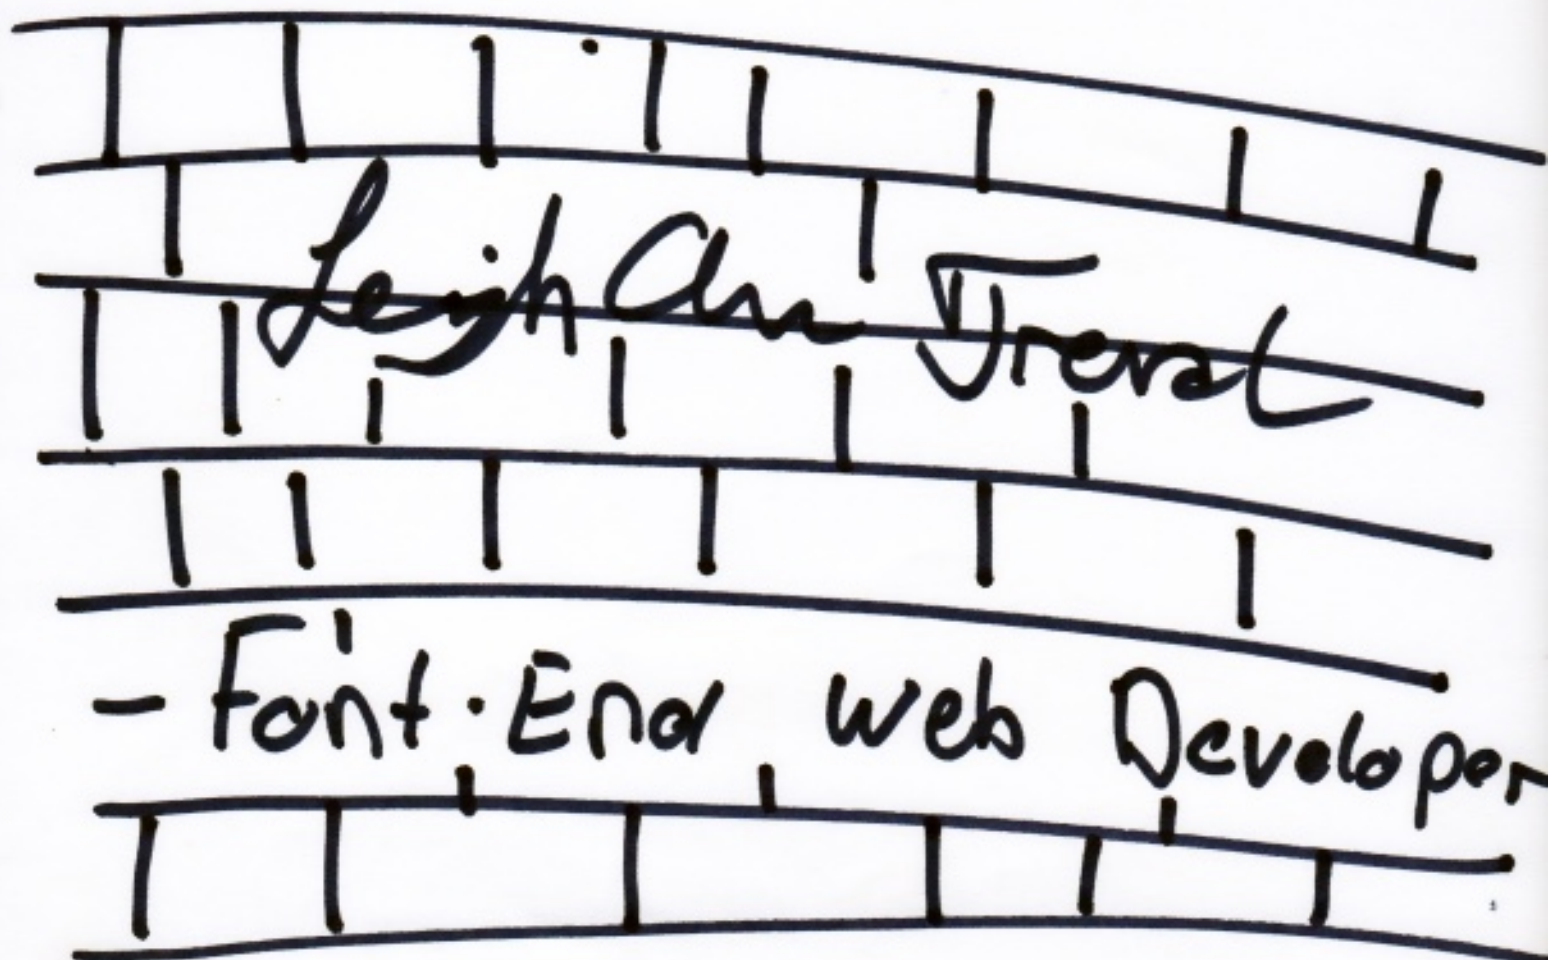 Leigh Ann Treval
- Font-End Web Developer